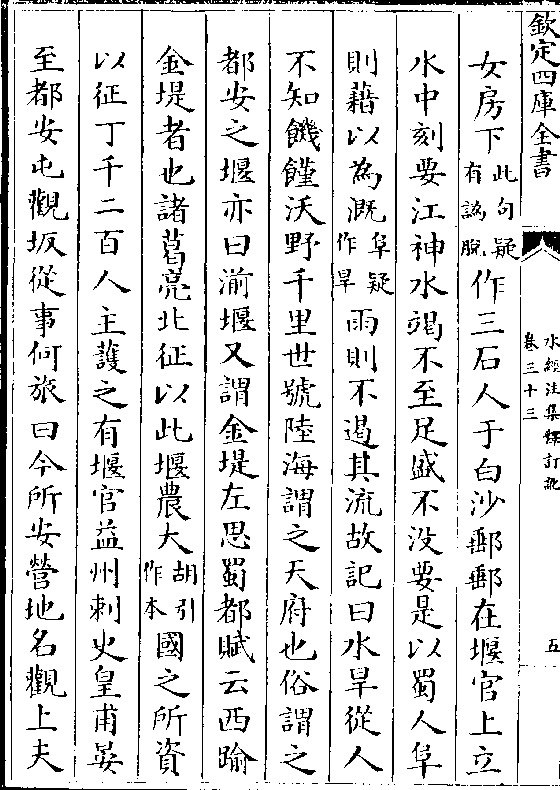 欽定四庫全書
水經注集釋訂訛
卷三十三
五
女房下此句疑有譌脫作三石人于白沙郵郵在堰官上立
水中刻要江神水竭不至足盛不没要是以蜀人阜
則藉以為溉阜疑作旱雨則不遏其流故記曰水旱從人
不知饑饉沃野千里世號陸海謂之天府也俗謂之
都安之堰亦曰湔堰又謂金堤左思蜀都賦云西踰
金堤者也諸葛亮北征以此堰農大胡引作本國之所資
以征丁千二百人主護之有堰官益州刺史皇甫晏
至都安屯觀坂從事何旅曰今所安營地名觀上夫